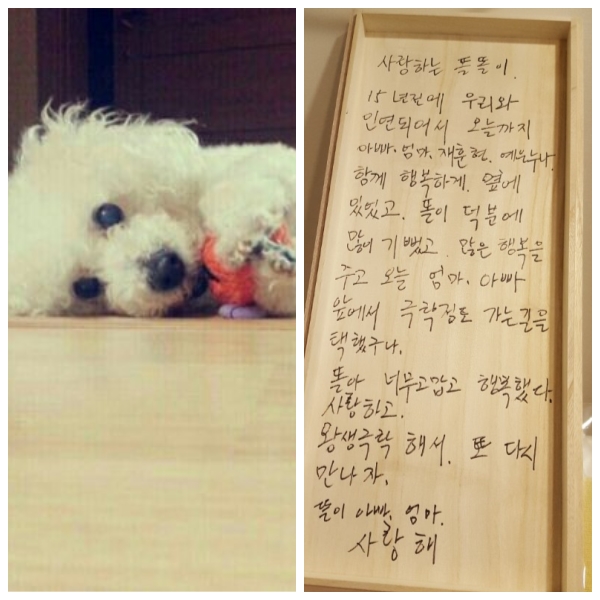 사랑하는 똘똘이.
15년전에 우리와
인연되어서 오늘까지
아빠. 엄마. 재훈현. 예은누나.
함께 행복하게. 옆에
있었고. 똘이 덕분에
많이 기뻤고. 많은 행복을
주고 오늘 엄마. 아빠
앞에서 극락정토 가는길을
택했구나.
똘아 너무고맙고 행복했다.
사랑하고.
왕생극락 해서. 또 다시
만나자.
똘이 아빠. 엄마.
사랑해